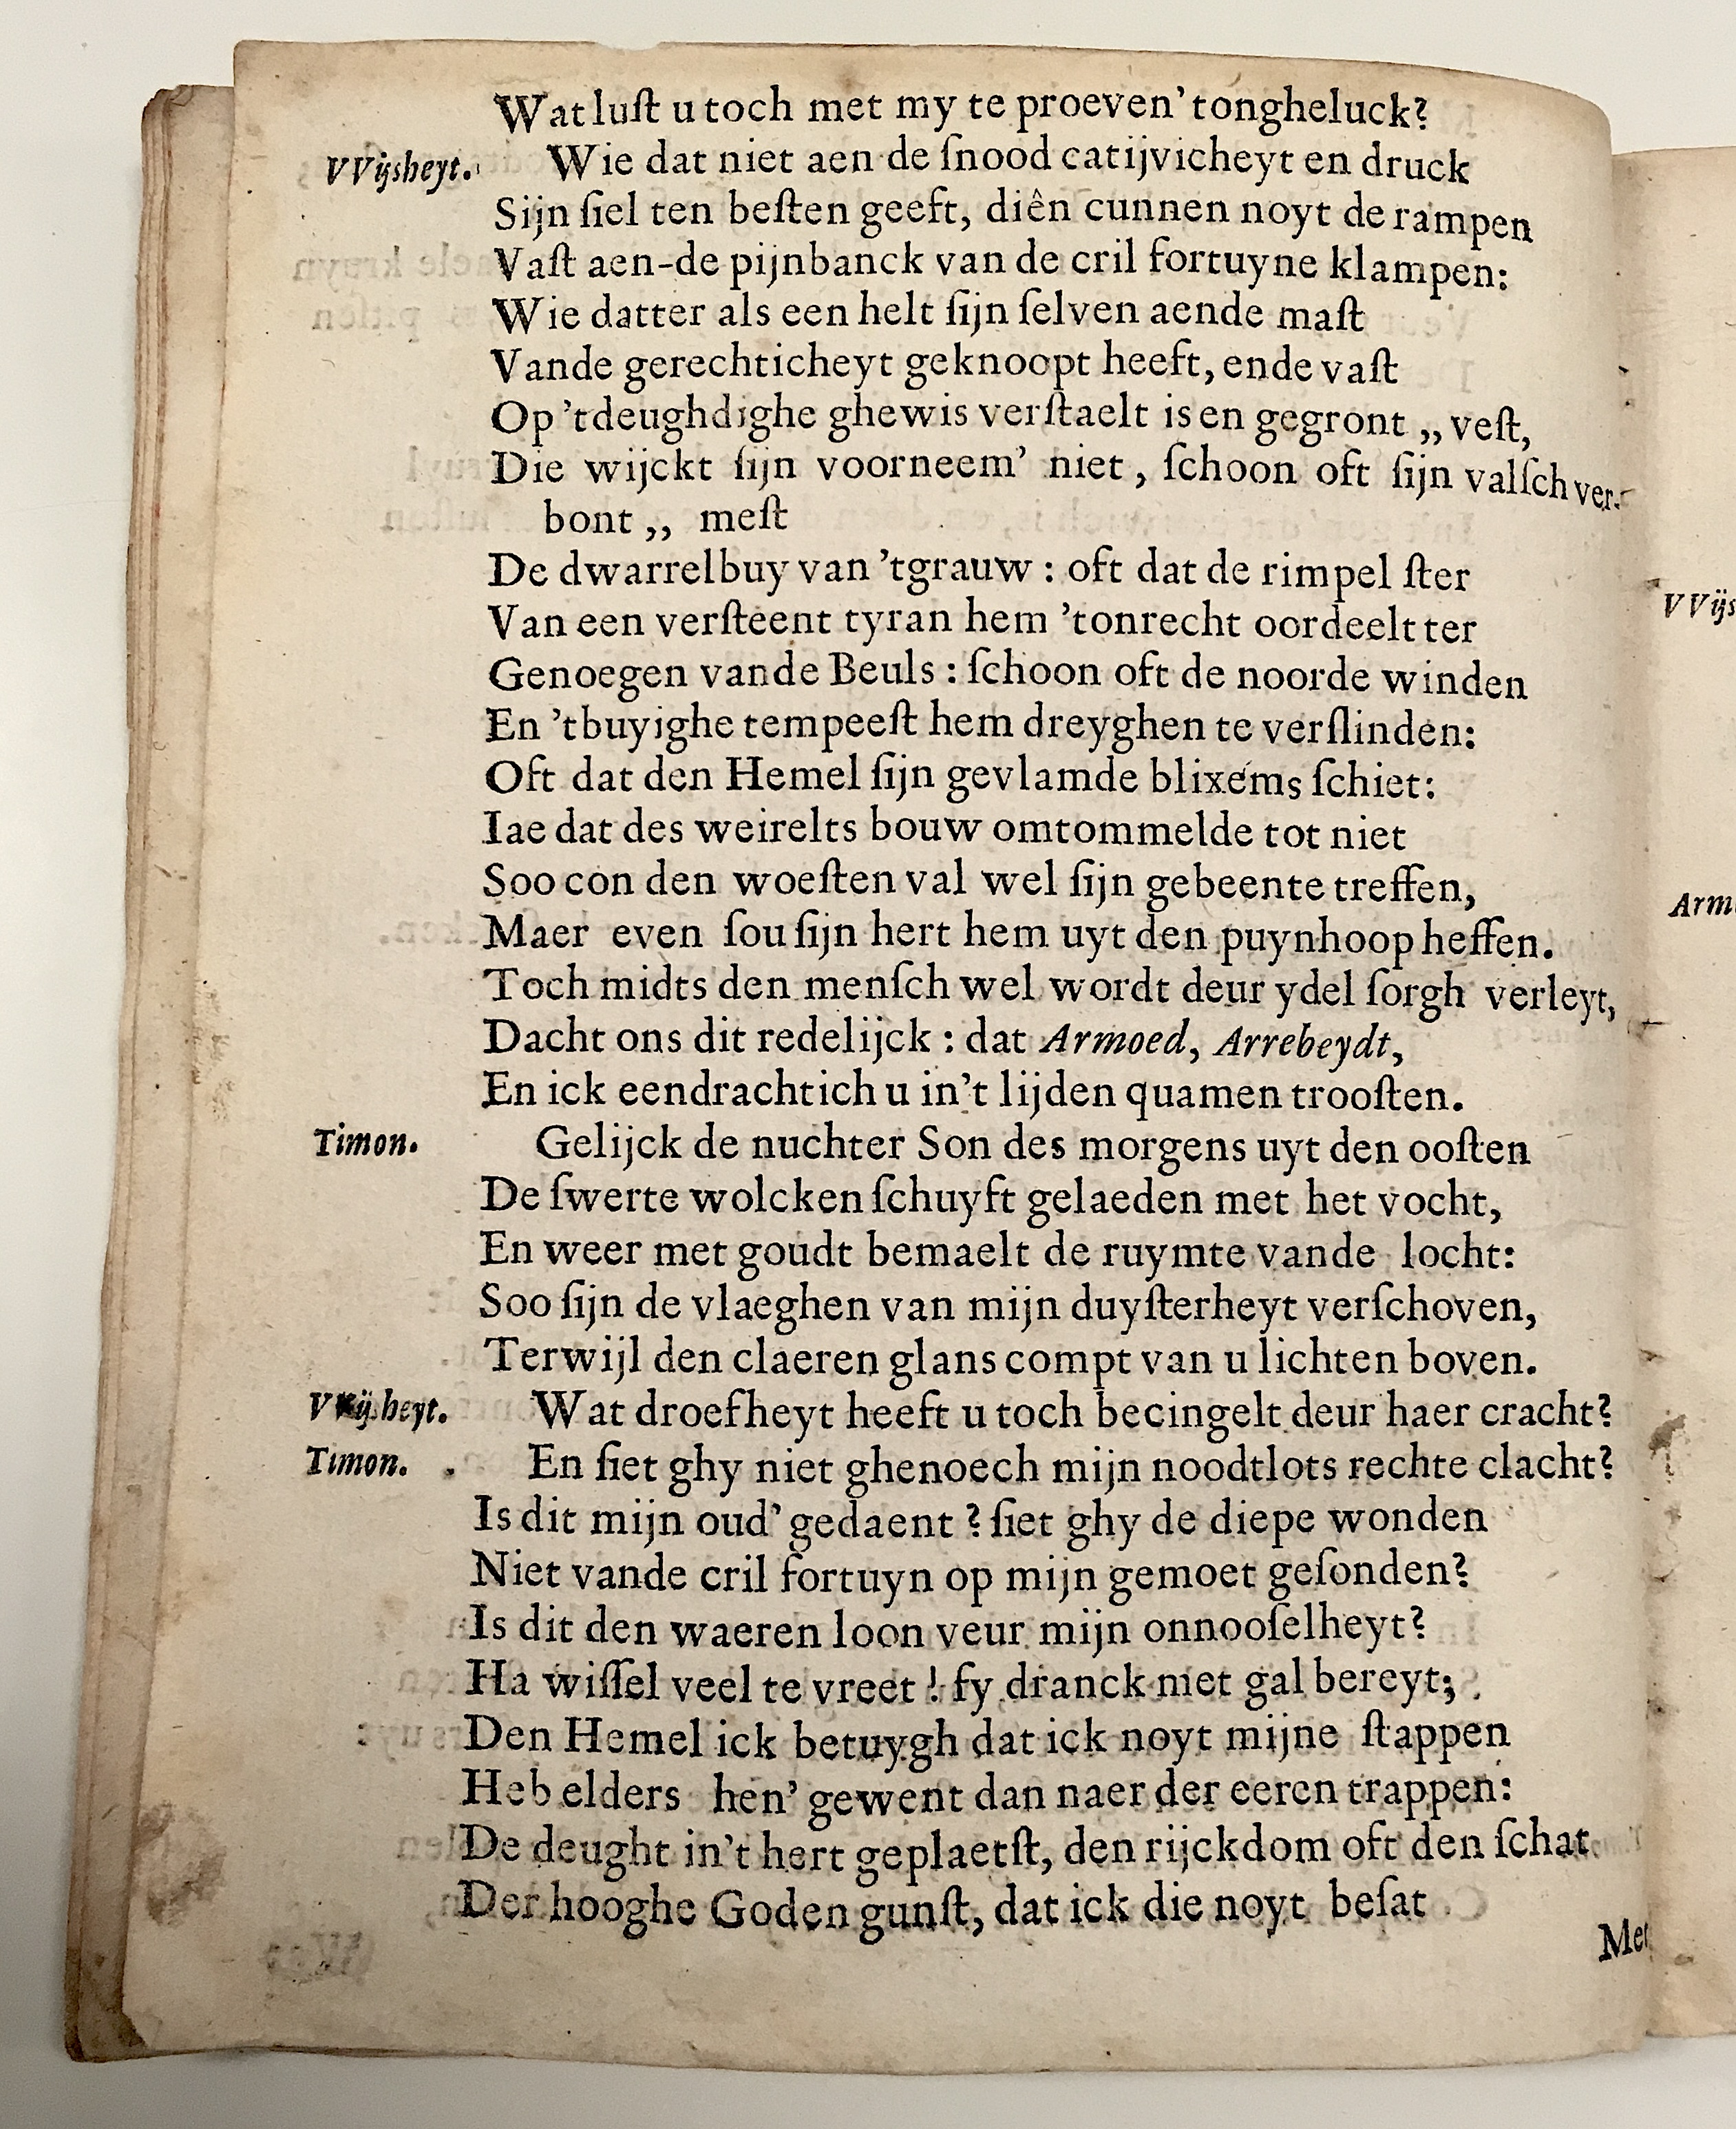 Wat luſt u toch met my te proeven' tongheluck?
VVijsheyt. Wie dat niet aen de ſnood catijvicheyt en druck
Sijn ſiel ten beſten geeft, diên cunnen noyt de rampen
Vaſt aen-de pijnbanck van de cril fortuyne klampen:
Wie datter als een helt ſijn ſelven aende maſt
Vande gerechticheyt geknoopt heeft, ende vaſt
Op 'tdeughdighe ghewis verſtaelt is en gegront ,, veſt,
Die wijckt ſijn voorneem' niet, ſchoon oft ſijn valſch ver-
bont ,, meſt
De dwarrelbuy van 'tgrauw : oft dat de rimpel ſter
Van een verſteent tyran hem 'tonrecht oordeelt ter
Genoegen vande Beuls : ſchoon oft de noorde winden
En 'tbuyighe tempeeſt hem dreyghen te verſlinden:
Oft dat den Hemel ſijn gevlamde blixems ſchiet:
Iae dat des weirelts bouw omtommelde tot niet
Soo con den woeſten val wel ſijn gebeente treffen,
Maer even ſou ſijn hert hem uyt den puynhoop heffen.
Toch midts den menſch wel wordt deur ydel ſorgh verleyt,
Dacht ons dit redelijck : dat Armoed, Arrebeydt,
En ick eendrachtich u in't lijden quamen trooſten.
Timon. Gelijck de nuchter Son des morgens uyt den ooſten
De ſwerte wolcken ſchuyft gelaeden met het vocht,
En weer met goudt bemaelt de ruymte vande locht:
Soo ſijn de vlaeghen van mijn duyſterheyt verſchoven,
Terwijl den claeren glans compt van u lichten boven.
VVijsheyt. Wat droefheyt heeft u toch becingelt deur haer cracht?
Timon. En ſiet ghy niet ghenoech mijn noodtlots rechte clacht?
Is dit mijn oud' gedaent ? ſiet ghy de diepe wonden
Niet vande cril fortuyn op mijn gemoet geſonden?
Is dit den waeren loon veur mijn onnooſelheyt?
Ha wiſſel veel te vreet ! fy dranck met gal bereyt;
Den Hemel ick betuygh dat ick noyt mijne ſtappen
Heb elders hen' gewent dan naer der eeren trappen:
De deught in't hert geplaetſt, den rijckdom oft den ſchat
Der hooghe Goden gunſt, dat ick die noyt beſat
Met
VVijs
Arm